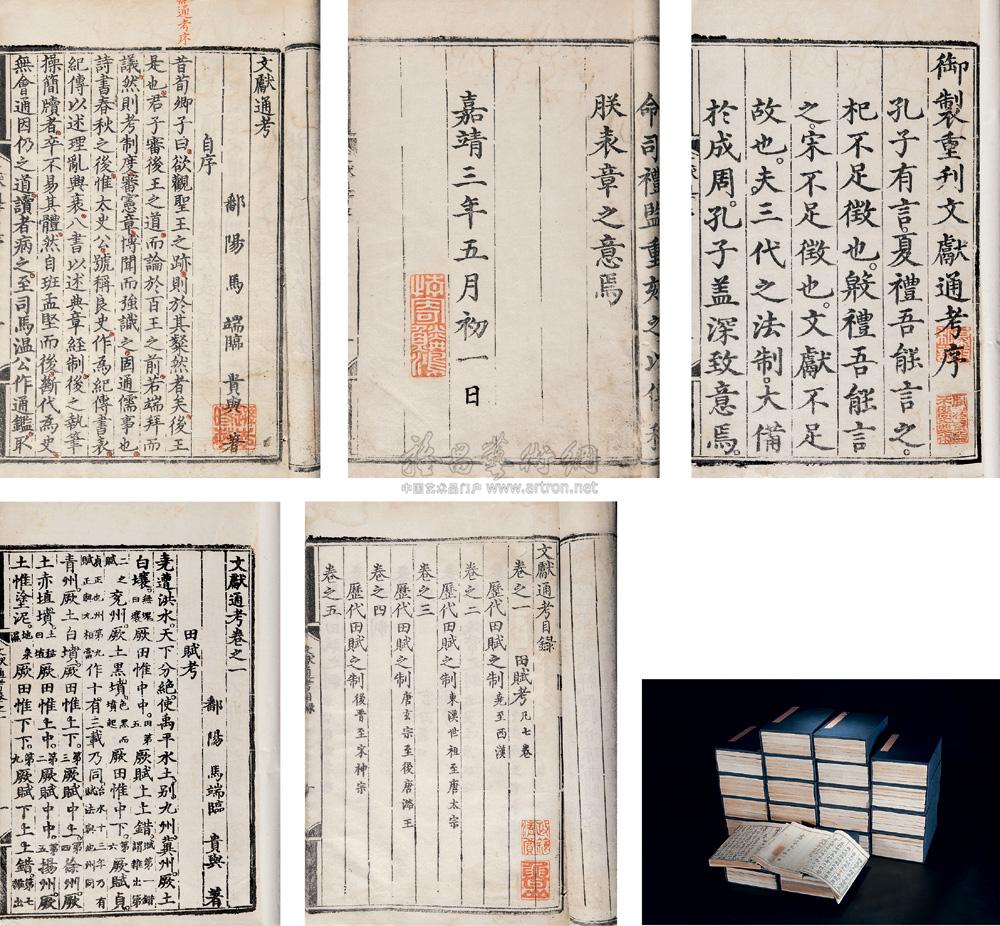 獻通考序
文獻通考
自序
鄱陽馬端臨貴與著
昔荀卿子曰欲觀聖王之跡則於其粲然者矣後王
是也君子審後王之道而論於百王之前若端拜而
議然則考制度審憲章博聞而強識之固通儒事也
詩書春秋之後惟太史公號稱良史作為紀傳書表
紀傳以述理亂興衰八書以述典章經制後之執筆
操簡牘者卒不易其體然自班孟堅而後斷代為史
無會通因仍之道讀者病之至司馬溫公作通鑑取
命司禮監重刻之以
朕表章之意焉
嘉靖三年五月初一日
御製重刊文獻通考序
孔子有言夏禮吾能言之
杞不足徵也殷禮吾能言
之宋不足徵也文獻不足
故也夫三代之法制大備
於成周孔子蓋深致意焉
雅昌藝術網
中国艺术品门户 www.artron.net
文獻通考卷之一
鄱陽馬端臨貴與著
田賦考
堯遭洪水天下分絕使禹平水土別九州冀州厥土
白壤無塊曰壤厥田惟中中田第五厥賦上上錯賦第一錯謂雜出第
二之賦兗州厥土黑墳色黑而墳起厥田惟中下第六厥賦貞
貞正也州第九賦正與九相當作十有三載乃同治水十三年乃有賦法與他州同
青州厥土白墳厥田惟上下第三厥賦中上第四徐州厥
土赤埴墳土黏曰埴厥田惟上中第二厥賦中中第五揚州厥
土惟塗泥地泉濕厥田惟下下第九厥賦下上上錯第七雜出
文獻通考目錄
卷之一 田賦考 凡七卷
歷代田賦之制 堯至西漢
卷之二
歷代田賦之制 東漢世祖至唐太宗
卷之三
歷代田賦之制 唐玄宗至後唐潞王
卷之四
歷代田賦之制 後晉至宋神宗
卷之五